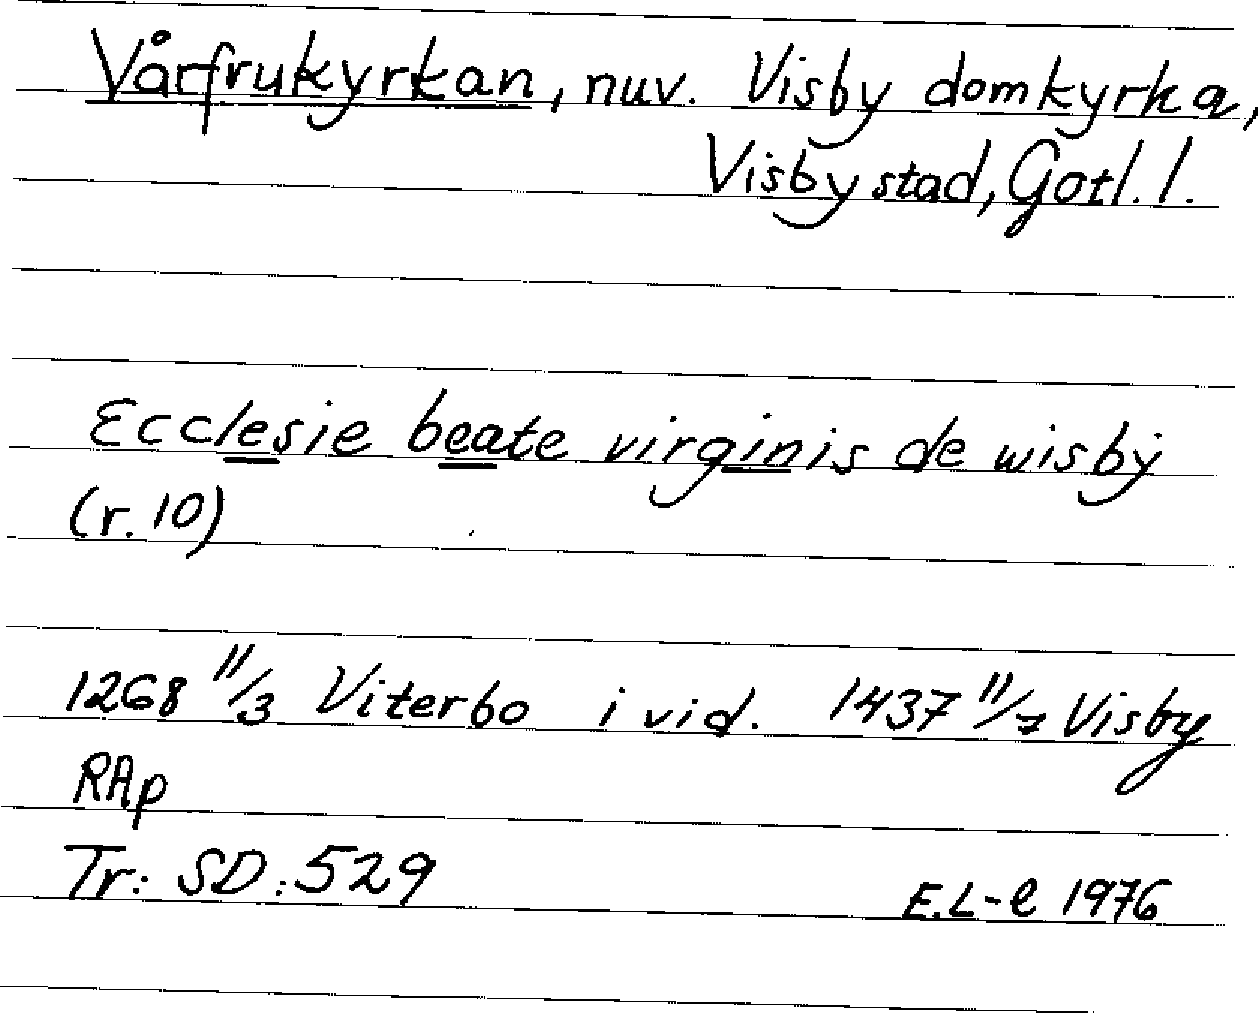 Vårfrukyrkan, nuv. Visby domkyrka,
Visby stad, Gotl. l.
Ecclesie beate virginis de wisbÿ
(r. 10)
1268 11/3 Viterbo i vid. 1437 11/7 Visby
RAp
Tr: SD: 529
E.L-e 1976